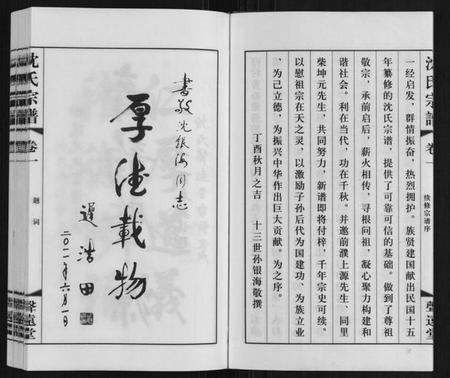 沈氏宗譜
卷一
续修宗谱序
聲遠堂
一经启发，群情振奋。热烈拥护。族贤建国献出民国十五
年纂修的沈氏宗谱，提供了可靠可信的基础。做到了尊祖
敬宗，承前启后，薪火相传，寻根问祖，凝心聚力构建和
谐社会。利在当代，功在千秋。并邀前濮上源先生、同里
柴坤元先生，共同努力，新谱即将付梓，千年宗史可续。
以慰祖宗在天之灵，以激励子孙后代为国建功、为族立业
、为己立德，为振兴中华作出巨大贡献。为之序。
丁酉秋月之吉 十三世孙银海敬撰
書敬沈银海同志
厚德載物
遲浩田
二〇一一年六月一日
沈氏宗譜
卷一
题词
聲遠堂